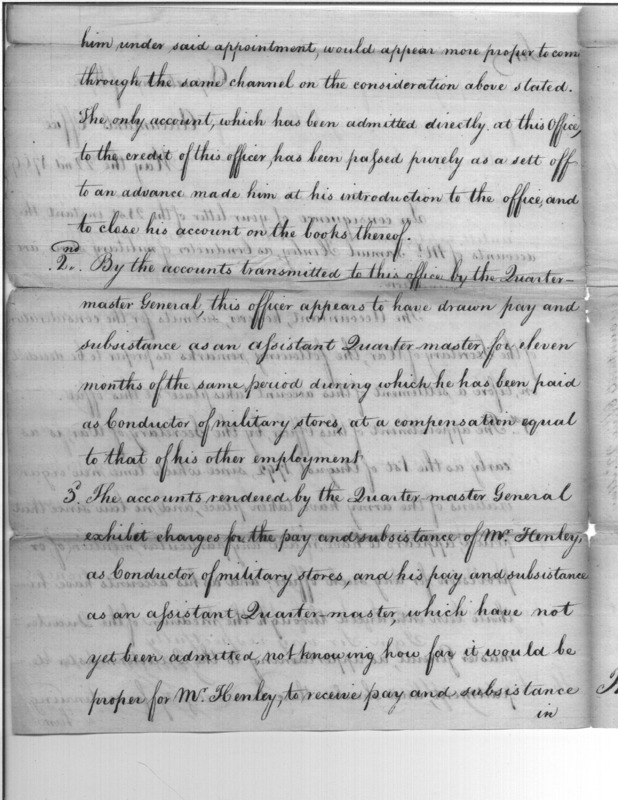 him, under said appointment, would appear more proper to com
through the same channel on the consideration above stated.
The only account, which has been admitted directly at this Office,
to the credit of this officer, has been passed purely as a sett off
to an advance made him at his introduction to the office, and
to close his account on the books thereof.
2nd. By the accounts transmitted to this office by the Quarter-
master General, this officer appears to have drawn pay and
subsistance as an assistant Quarter master for eleven
months of the same period during which he has been paid
as Conductor of military stores, at a compensation equal
to that of his other employment
3d. The accounts rendered by the Quarter master General
exhibit charges for the pay and subsistance of Mr. Henley,
as Conductor of military stores, and his pay and subsistance
as an assistant Quarter-master, which have not
yet been admitted, not knowing how far it would be
proper for Mr. Henley, to receive pay and subsistance
in